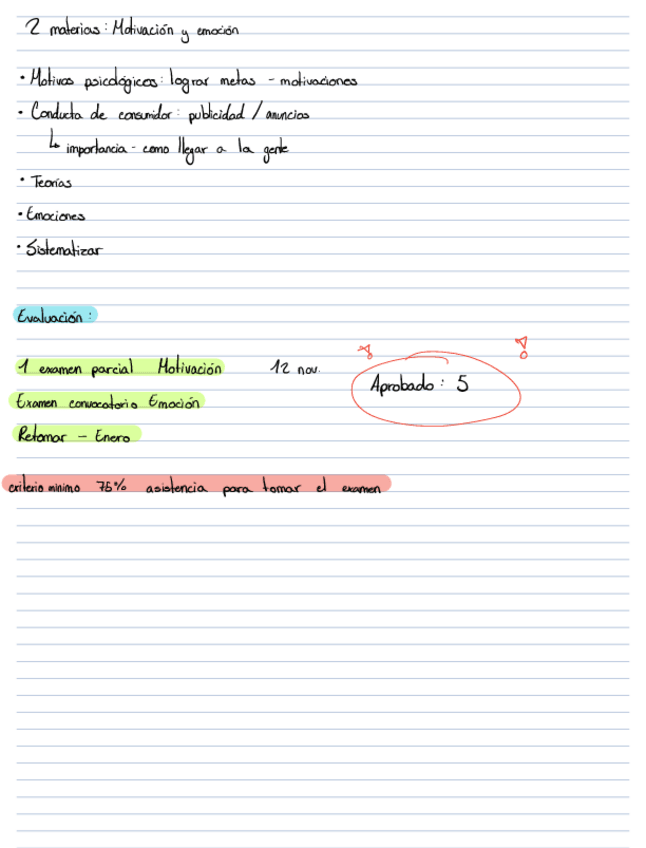 2 materias: Motivación y emoción
• Motivos psicológicos: lograr metas - motivaciones
• Conducta de consumidor: publicidad / anuncios
↳ importancia - como llegar a la gente
• Teorías
• Emociones
• Sistematizar
Evaluación:
1 examen parcial Motivación 12 nov.
Aprobado: 5
Examen convocatorio Emoción
Retomar - Enero
criterio minimo 75% asistencia para tomar el examen